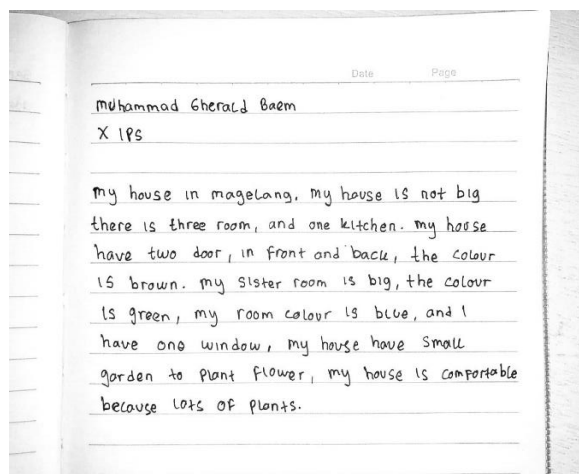 Date Page
Muhammad Gherald Baem
X IPS
my house in magelang. my house is not big
there is three room, and one kitchen. my house
have two door, in front and back, the colour
is brown. my sister room is big, the colour
is green, my room colour is blue, and I
have one window, my house have small
garden to plant flower, my house is comfortable
because lots of plants.